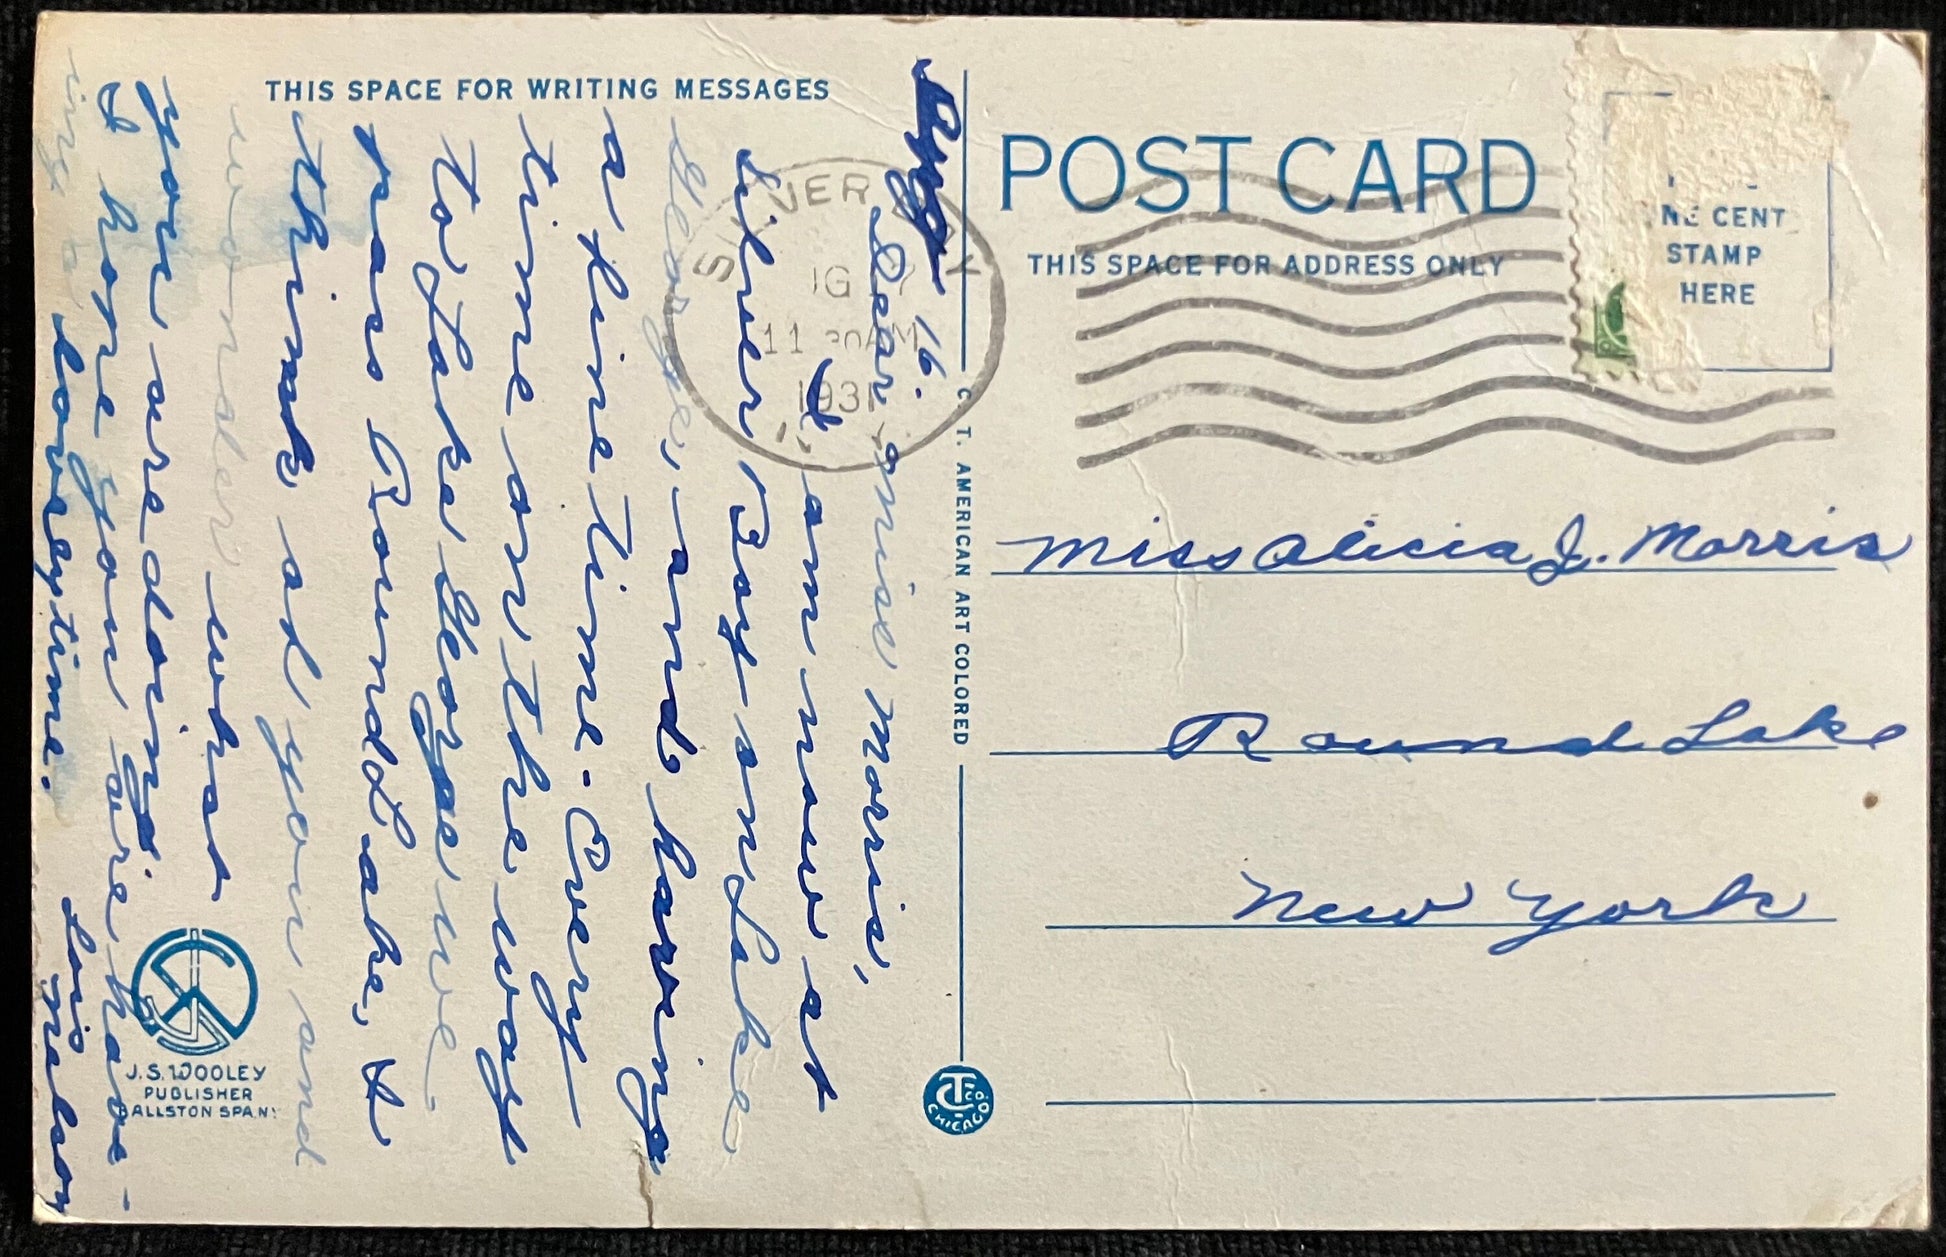 THIS SPACE FOR WRITING MESSAGES
Aug. 16.
Dear Miss Morris,
I am now at
Silver Bay on Lake
George, and having
a fine time. Every
time on the way
to Lake George we
pass Round Lake, I
think of you and
wonder what
you are doing.
I hope you are hav-
ing a lovely time.
Lois Nelson
J. S. WOOLEY
PUBLISHER
BALLSTON SPA N.Y.
C. T. AMERICAN ART COLORED
CHICAGO
POST CARD
THIS SPACE FOR ADDRESS ONLY
NE CENT
STAMP
HERE
SILVER BAY
11 30 AM
193
Miss Alicia J. Morris
Round Lake
New York